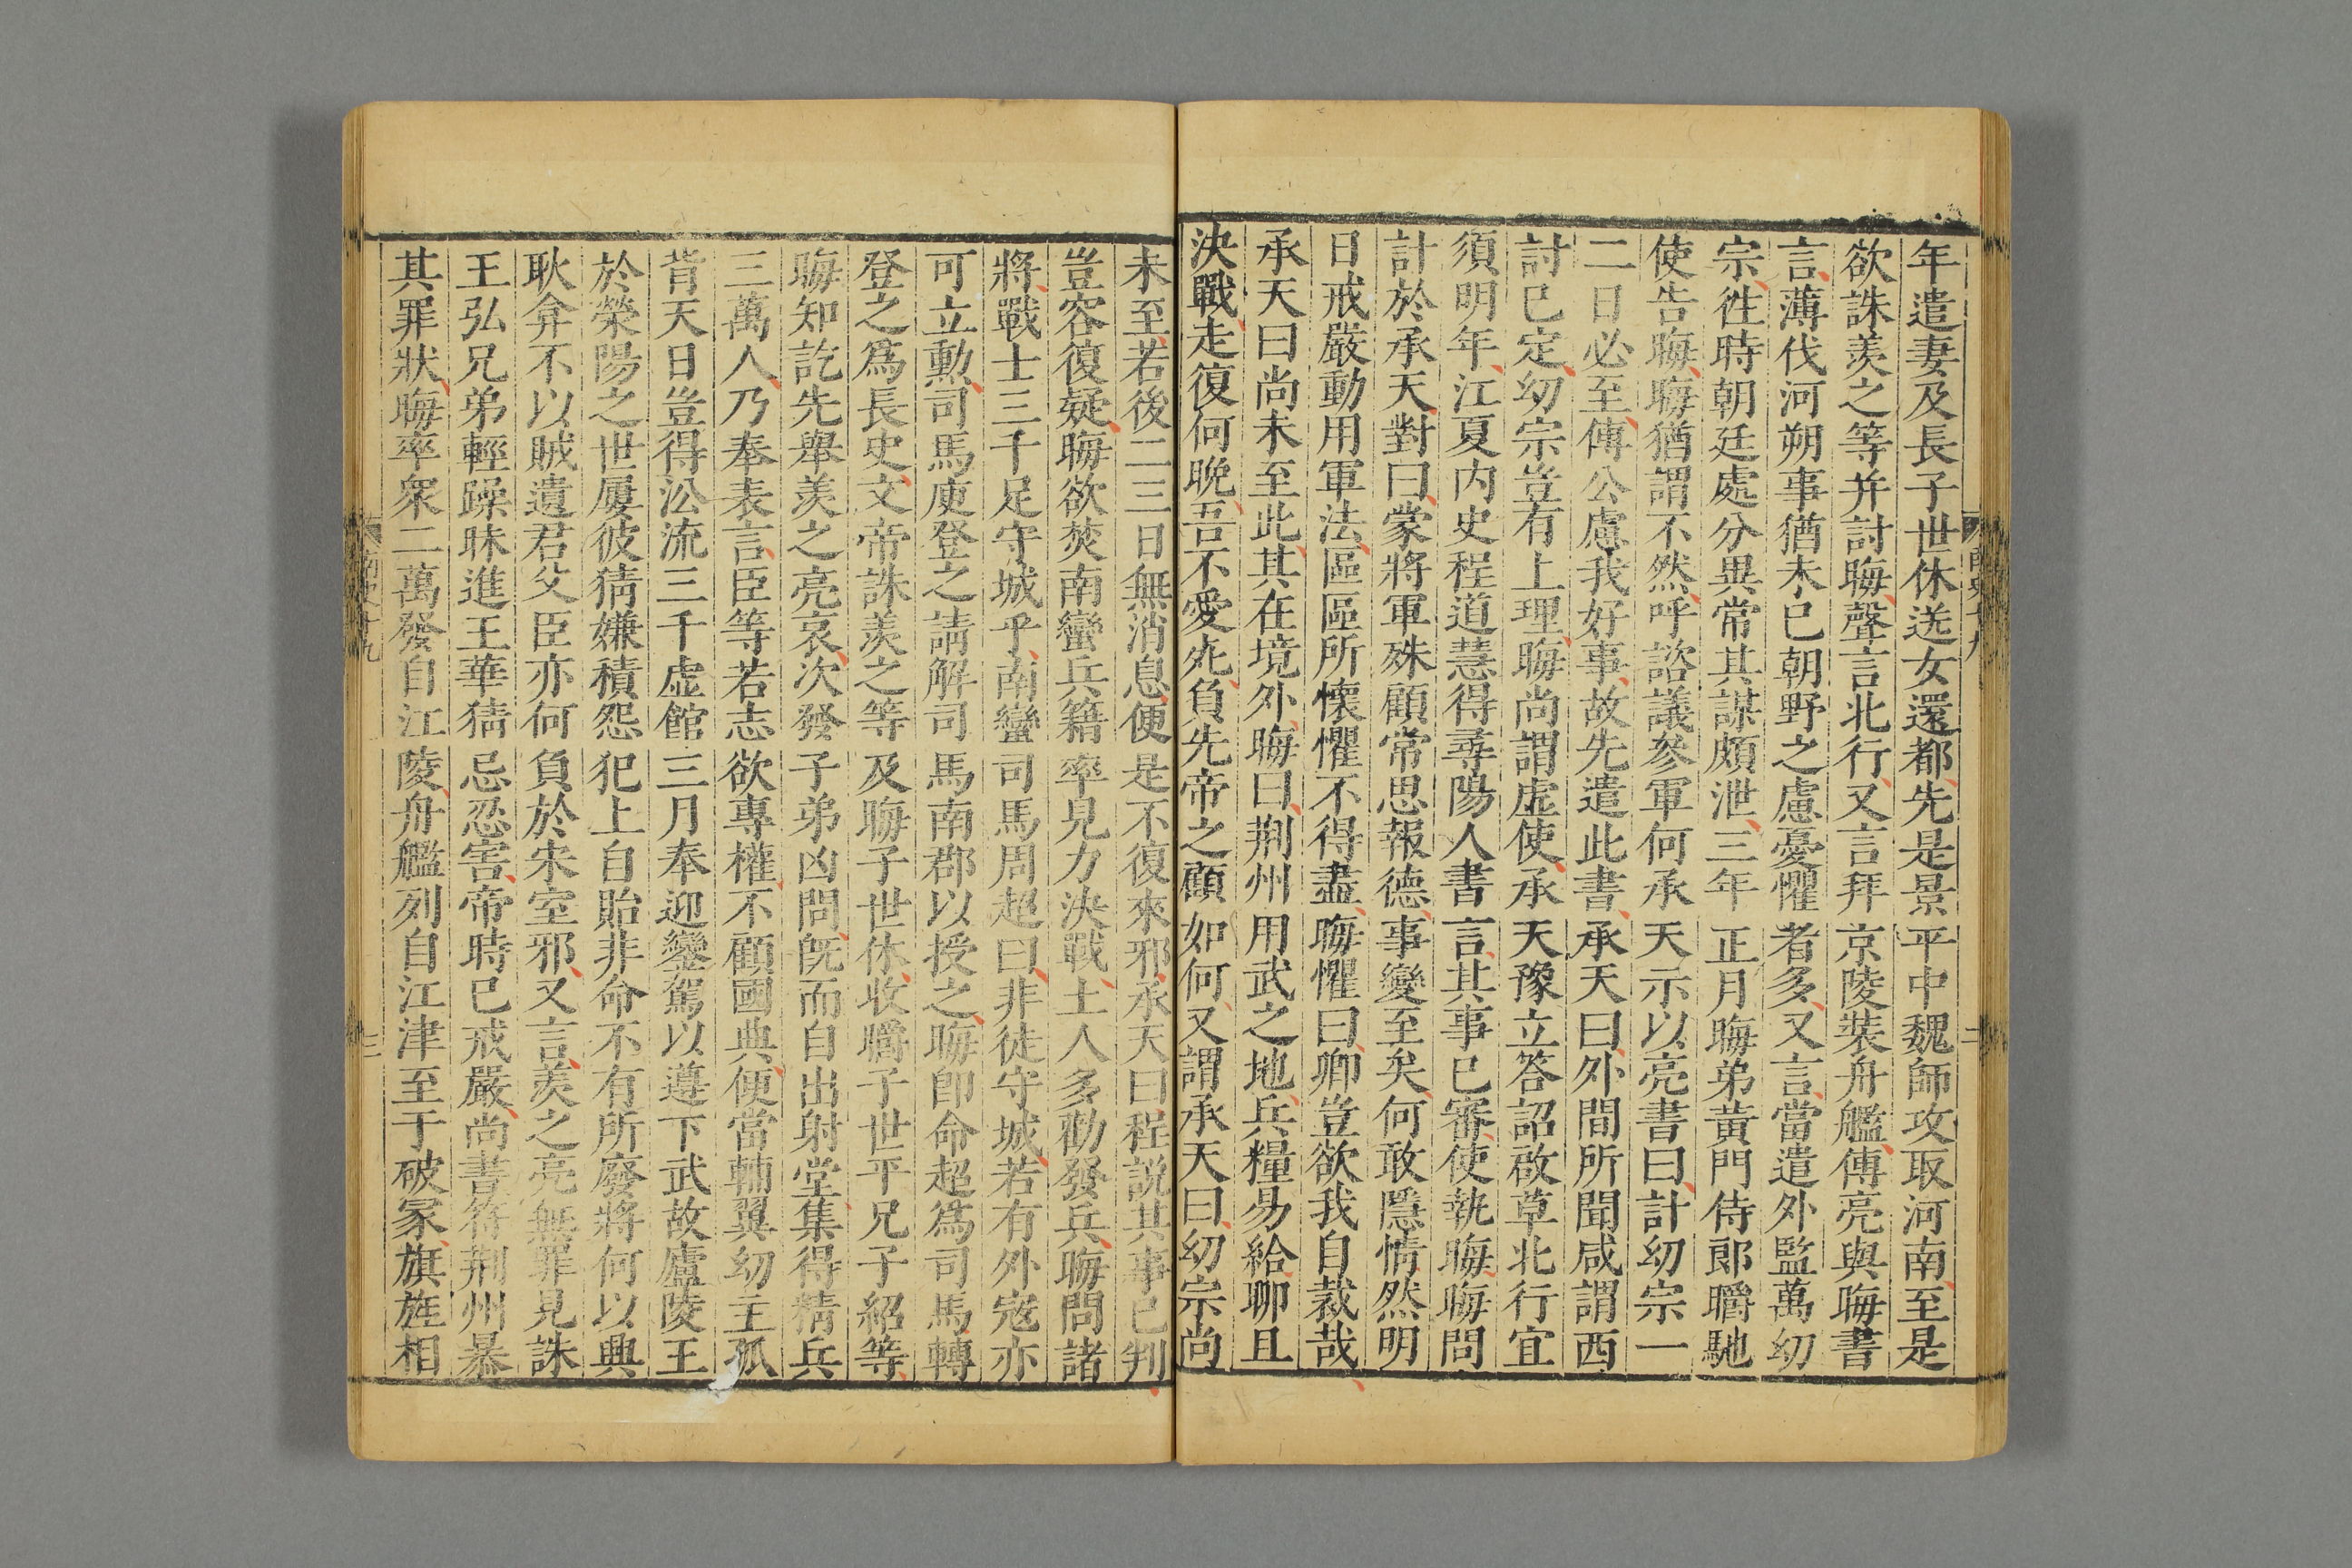 年遣妻及長子世休送女還都先是景平中魏師攻取河南至是
欲誅羨之等并討晦聲言北行又言拜京陵裝舟艦傅亮與晦書
言薄伐河朔事猶未已朝野之慮憂懼者多又言當遣外監萬幼
宗往時朝廷處分異常其謀頗泄三年正月晦弟黃門侍郎㬭馳
使告晦晦猶謂不然呼諮議參軍何承天示以亮書曰計幼宗一
二日必至傅公慮我好事故先遣此書承天曰外間所聞咸謂西
討已定幼宗豈有上理晦尚謂虛使承天豫立答詔啟草北行宜
須明年江夏內史程道慧得尋陽人書言其事已審使執晦晦問
計於承天對曰蒙將軍殊顧常思報德事變至矣何敢隱情然明
日戒嚴動用軍法區區所懷懼不得盡晦懼曰卿豈欲我自裁哉
承天曰尚未至此其在境外晦曰荆州用武之地兵糧易給聊且
決戰走復何晚吾不愛死負先帝之顧如何又謂承天曰幼宗尚
未至若後二三日無消息便是不復來邪承天曰程說其事已判
豈容復疑晦欲焚南蠻兵籍率見力決戰士人多勸發兵晦問諸
將戰士三千足守城乎南蠻司馬周超曰非徒守城若有外寇亦
可立勲司馬庾登之請解司馬南郡以授之晦卽命超爲司馬轉
登之爲長史文帝誅羨之等及晦子世休收㬭子世平兄子紹等
晦知訖先舉羨之亮哀次發子弟凶問旣而自出射堂集得精兵
三萬人乃奉表言臣等若志欲專權不顧國典便當輔翼幼主孤
背天日豈得㳂流三千虛館三月奉迎鑾駕以遵下武故廬陵王
於榮陽之世屢彼猜嫌積怨犯上自貽非命不有所廢將何以興
耿弇不以賊遺君父臣亦何負於宋室邪又言羨之亮無罪見誅
王弘兄弟輕躁昧進王華猜忌忍害帝時已戒嚴尚書符荆州暴
其罪狀晦率衆二萬發自江陵舟艦列自江津至于破冢旗旌相
南史十九
二
南史十九
三